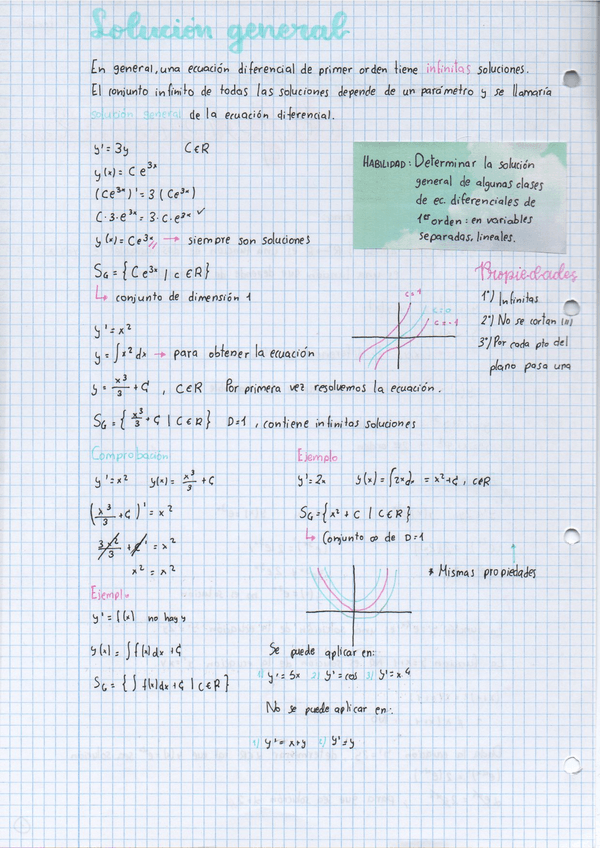 Solución general
En general, una ecuación diferencial de primer orden tiene infinitas soluciones.
El conjunto infinito de todas las soluciones depende de un parámetro y se llamaría
solución general de la ecuación diferencial.
y' = 3y C∈R
y(x) = C e^3x
(Ce^3x)' = 3 (Ce^3x)
C·3·e^3x = 3·C·e^3x ✓
y(x) = Ce^3x → siempre son soluciones
S_G = {Ce^3x | C∈R}
↳ conjunto de dimensión 1
HABILIDAD: Determinar la solución
general de algunas clases
de ec. diferenciales de
1er orden: en variables
separadas, lineales.
Propiedades
1º) Infinitas
2º) No se cortan (//)
3º) Por cada pto del
plano pasa una
c=1
c=0
c=-1
y' = x²
y = ∫x² dx → para obtener la ecuación
y = x³/3 + C, C∈R Por primera vez resolvemos la ecuación.
S_G = {x³/3 + C | C∈R} D=1, contiene infinitas soluciones
Comprobación
y' = x² y(x) = x³/3 + C
(x³/3 + C)' = x²
3x²/3 + C' = x²
x² = x²
Ejemplo
y' = 2x y(x) = ∫2x dx = x² + C, C∈R
S_G = {x² + C | C∈R}
↳ Conjunto ∞ de D=1
* Mismas propiedades
Ejemplo
y' = f(x) no hay y
y(x) = ∫f(x)dx + C
S_G = {∫f(x)dx + C | C∈R}
Se puede aplicar en:
1) y' = 5x 2) y' = cos 3) y' = x·4
No se puede aplicar en:
1) y' = x+y 2) y' = y